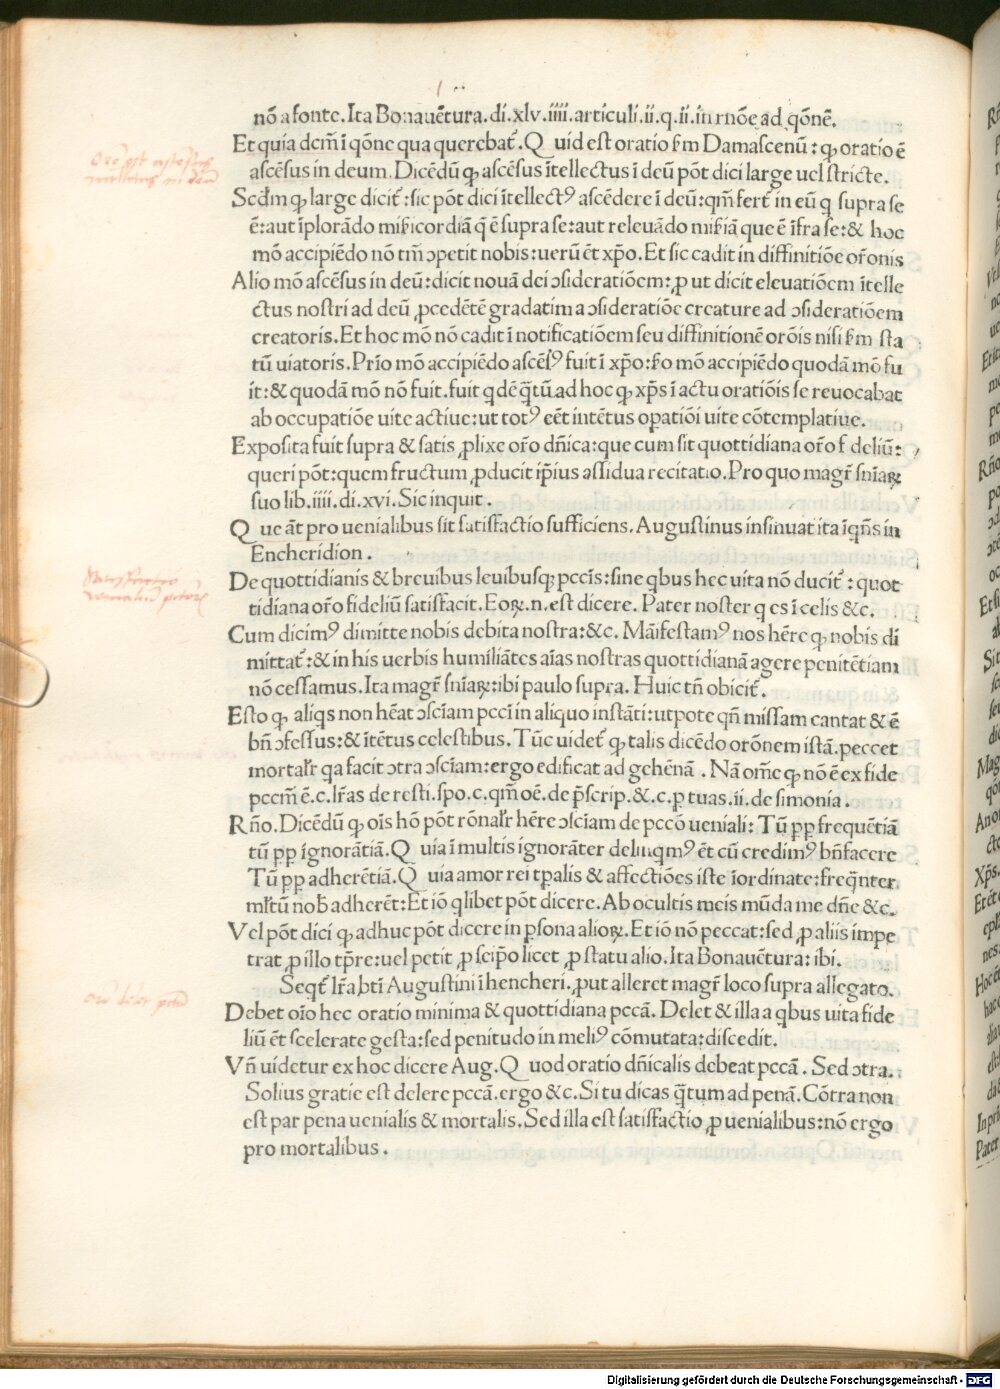 nō a fonte. Ita Bonauētura. di. xlv. iiii. articuli. ii. q. ii. in rnōe ad qōnē.
Et quia dcm̄ ī qōne qua querebat᷑. Q uid est oratio ẜm Damascenū: ꝙ oratio ē
ascēsus in deum. Dicēdū ꝙ ascēsus ītellectus ī deū pōt dici large uel stricte.
Scđm ꝙ large dicit᷑: sic pōt dici ītellectꝰ ascēdere ī deū: qm̄ fert᷑ in eū q supra se
ē: aut īplorādo mīicordiā q̄ ē supra se: aut releuādo miẜiā que ē īfra se: & hoc
mō accipiēdo nō tm̄ ↄpetit nobis: uerū ēt xp̄o. Et sic cadit in diffinitiōe orōnis
Alio mō ascēsus in deū: dicit nouā dei ↄsideratiōem: ꝓut dicit eleuatiōem ītelle
ctus nostri ad deū ꝓcedētē gradatim a ↄsideratiōe creature ad ↄsideratiōem
creatoris. Et hoc mō nō cadit ī notificatiōem seu diffinitionē orōis nisi ẜm sta
tū uiatoris. Prīo mō accipiēdo ascēsꝰ fuit ī xp̄o: ẜo mō accipiēdo quodā mō fu
it: & quodā mō nō fuit. fuit qdē q̄tū ad hoc ꝙ xp̄s ī actu oratiōis se reuocabat
ab occupatiōe uite actiue: ut totꝰ eēt intētus opatiōi uite cōtemplatiue.
Exposita fuit supra & satis ꝓlixe orō dn̄ica: que cum sit quottidiana orō fideliū:
queri pōt: quem fructum ꝓducit ip̄ius assidua recitatio. Pro quo magr̄ sniaꝝ
suo lib. iiii. di. xvi. Sic inquit.
Q ue āt pro uenialibus sit satisfactio sufficiens. Augustinus insinuat ita īqn̄s in
Encheridion.
De quottidianis & breuibus leuibusqꝫ pcc̄is: sine qbus hec uita nō ducit᷑: quot
tidiana orō fideliū satisfacit. Eoꝝ. n. est dicere. Pater noster q es ī celis &c.
Cum dicimꝰ dimitte nobis debita nostra: &c. Māifestamꝰ nos hēre ꝙ nobis di
mittat᷑: & in his uerbis humiliātes aīas nostras quottidianā agere penitētiam
nō cessamus. Ita magr̄ sniaꝝ: ibi paulo supra. Huic tn̄ obicit᷑.
Esto ꝙ aliqs non hēat ↄsciam pcc̄i in aliquo instāti: utpote qn̄ missam cantat & ē
bn̄ ↄfessus: & ītētus celestibus. Tūc uidet᷑ ꝙ talis dicēdo orōnem istā. peccet
mortalr̄ qa facit ↄtra ↄsciam: ergo edificat ad gehēnā. Nā om̄e ꝙ nō ē ex fide
pccm̄ ē. c. lr̄as de resti. spo. c. qm̄ oē. de p̄scrip. &. c. p tuas. ii. de simonia.
Rn̄o. Dicēdū ꝙ oīs hō pōt rōnalr̄ hēre ↄsciam de pccō ueniali: Tū pp frequētiā
tū pp ignorātiā. Q uia ī multis ignorāter delinqmꝰ ēt cū credimꝰ bn̄facere
Tū pp adherētiā. Q uia amor rei tpalis & affectiōes iste īordinate: freq̄nter
ml̄tū nob̄ adherēt: Et iō qlibet pōt dicere. Ab ocultis meis mūda me dn̄e &c.
Vel pōt dici ꝙ adhuc pōt dicere in psona alioꝝ. Et iō nō peccat: sed ꝓ aliis impe
trat ꝓ illo tp̄re: uel petit ꝓ seip̄o licet ꝓ statu alio. Ita Bonauētura: ibi.
Seqt᷑ lr̄a bt̄i Augustini ī hencheri. ꝓut alleret magr̄ loco supra allegato.
Debet oīo hec oratio minima & quottidiana pccā. Delet & illa a qbus uita fide
liū ēt scelerate gesta: sed penitudo in meliꝰ cōmutata: discedit.
Vn̄ uidetur ex hoc dicere Aug. Q uod oratio dn̄icalis debeat pccā. Sed ↄtra.
Solius gratie est delere pccā. ergo &c. Si tu dicas q̄tum ad penā. Cōtra non
est par pena uenialis & mortalis. Sed illa est satisfactio ꝓ uenialibus: nō ergo
pro mortalibus.
Digitalisierung gefördert durch die Deutsche Forschungsgemeinschaft - DFG